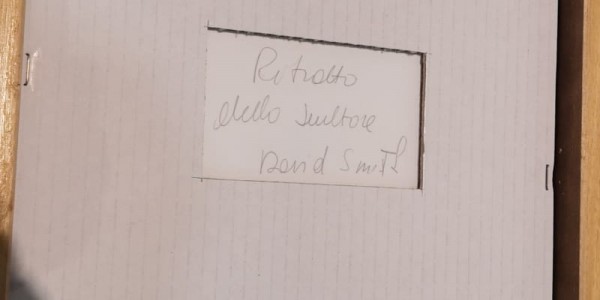 Ritratto
dello scultore
David Smith